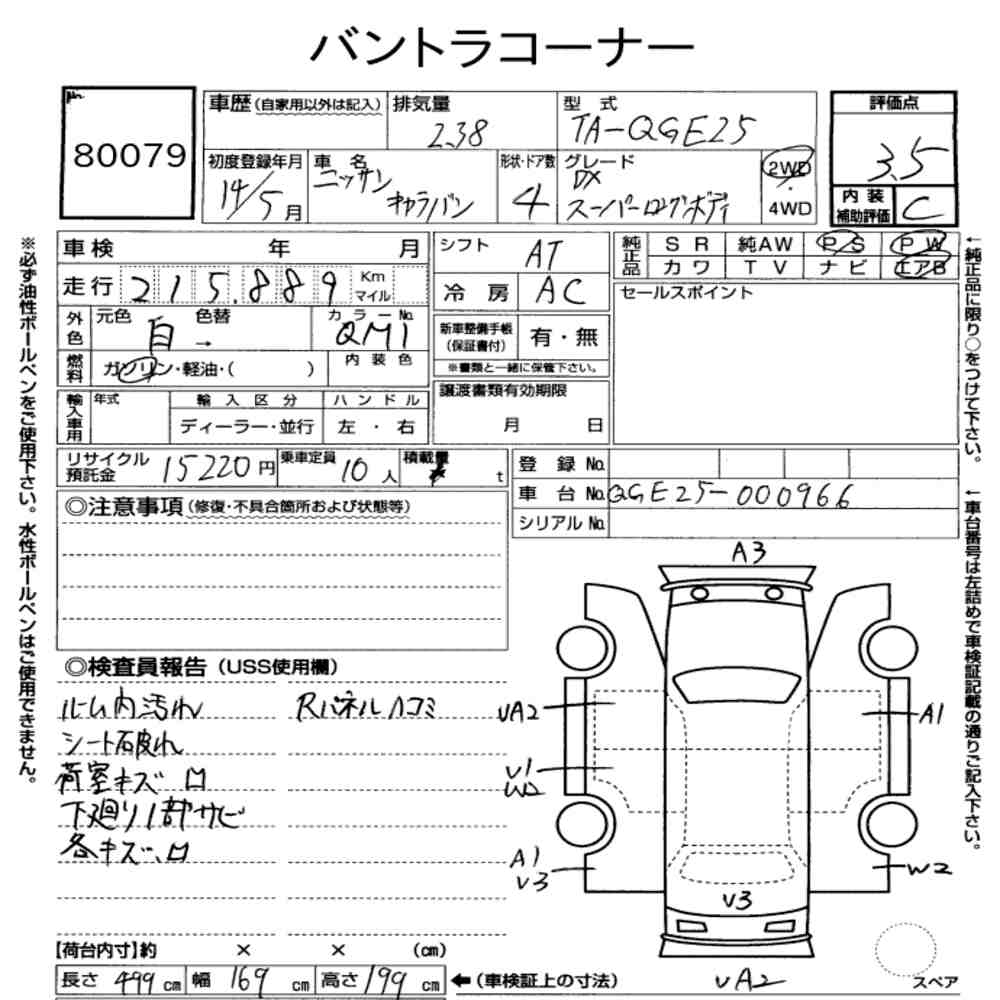 バントラコーナー
80079
車歴(自家用以外は記入) 排気量 2.38 型式 TA-QGE25
初度登録年月 14/5月 車名 ニッサン キャラバン 形状・ドア数 4 グレード DX スーパーロングボディ 2WD 4WD
評価点 3.5
内装補助評価 C
車検 年 月
走行 215.889 Km マイル
外色 元色 白 → 色替 カラーNo. QM1
燃料 ガソリン・軽油・( ) 内装色
輸入車用 年式 輸入区分 ハンドル
ディーラー・並行 左・右
リサイクル預託金 15220円 乗車定員 10人 積載量 t
シフト AT
冷房 AC
新車整備手帳(保証書付) 有・無
※書類と一緒に保管下さい。
譲渡書類有効期限
月 日
純正品 SR 純AW PS PW
カワ TV ナビ エアB
セールスポイント
登録No.
車台No. QGE25-000966
シリアルNo.
◎注意事項(修復・不具合箇所および状態等)
◎検査員報告(USS使用欄)
ルーム内汚れ Rパネルハコミ
シート破れ
荷室キズ、凹
下廻り1部サビ
各キズ、凹
A3
UA2
A1
U1
W2
A1
V3
W2
V3
UA2
スペア
【荷台内寸】約 × × (cm)
長さ 499cm 幅 169cm 高さ 199cm ←(車検証上の寸法)
※必ず油性ボールペンをご使用下さい。水性ボールペンはご使用できません。
←純正品に限り○をつけて下さい。
←車台番号は左詰めで車検証記載の通りご記入下さい。